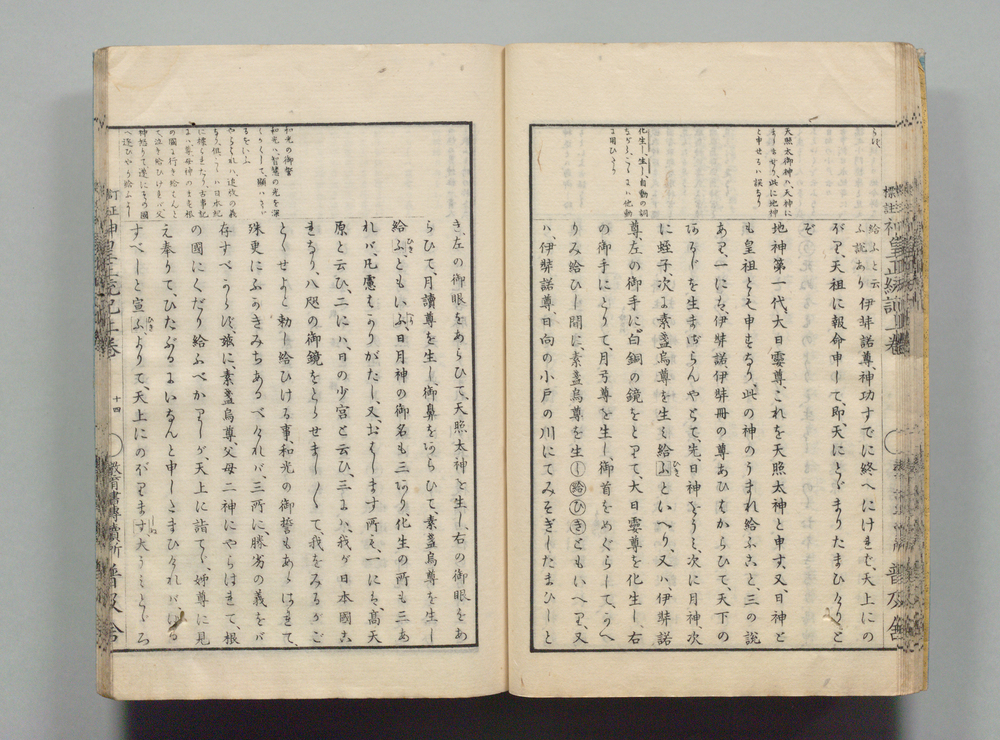 給ふと云
ふ説あり
伊弉諾尊神功すでに終へにけれバ、天上にの
がり、天祖に報命申して、即、天にとゞまりたまひけりと
ぞ
地神第一代、大日孁尊、これを天照太神と申す、又、日神と
も皇祖とも申すなり、此の神のうまれ給ふこと、三の説
あり、一にハ、伊弉諾伊弉冊の尊あひはからひて、天下の
あるじを生まざらんやとて、先、日神をうミ、次に月神、次
に蛭子、次に素盞烏尊を生ミ給ふといへり、又ハ伊弉諾
尊、左の御手に白銅の鏡をとりて、大日孁尊を化生し、右
の御手にとりて、月弓尊を生し、御首をめぐらして、かへ
りみ給ひし間に、素盞烏尊を生し給ひきともいへり、又
ハ、伊弉諾尊、日向の小戸の川にてみそぎしたまひしと
天照太御神ハ、天神に
ましませり、此に地神
と申せるハ誤なり
化生し、生し、自動の詞
ながら、こゝにハ他動
に用ひたり
き、左の御眼をあらひて、天照太神を生し、右の御眼をあ
らひて、月讀尊を生し、御鼻をあらひて、素盞烏尊を生し
給ふともいふ、日月神の御名も三あり、化生の所も三あ
れバ、凡慮はかりがたし、又、おはします所も、一にハ、高天
原と云ひ、二にハ、日の少宮と云ひ、三にハ、我が日本國こ
れなり、八咫の御鏡をとらせまし〳〵て、我をみるがご
とくせよと勅し給ひける事、和光の御誓もあらはれて、
殊更にふかきみちあるべければ、三所に、勝劣の義をバ
存すべからず、爰に、素盞烏尊、父母二神にやらはれて、根
の國にくだり給ふべかりしが、天上に詣でゝ、姉尊に見
え奉りて、ひたぶるにいなんと申したまひけれバ、
すべしと宣ふ、よりて、天上にのぼります、大うミとゞろ
和光の御誓
和光ハ、智慧の光を深
くかくして、顯ハさゞ
るをいふ
やらはれハ、追放の義
なり
標註
神皇正統記上巻
訂正
神皇正統記上巻
十四
教育書専賣所
普及舎
普及舎